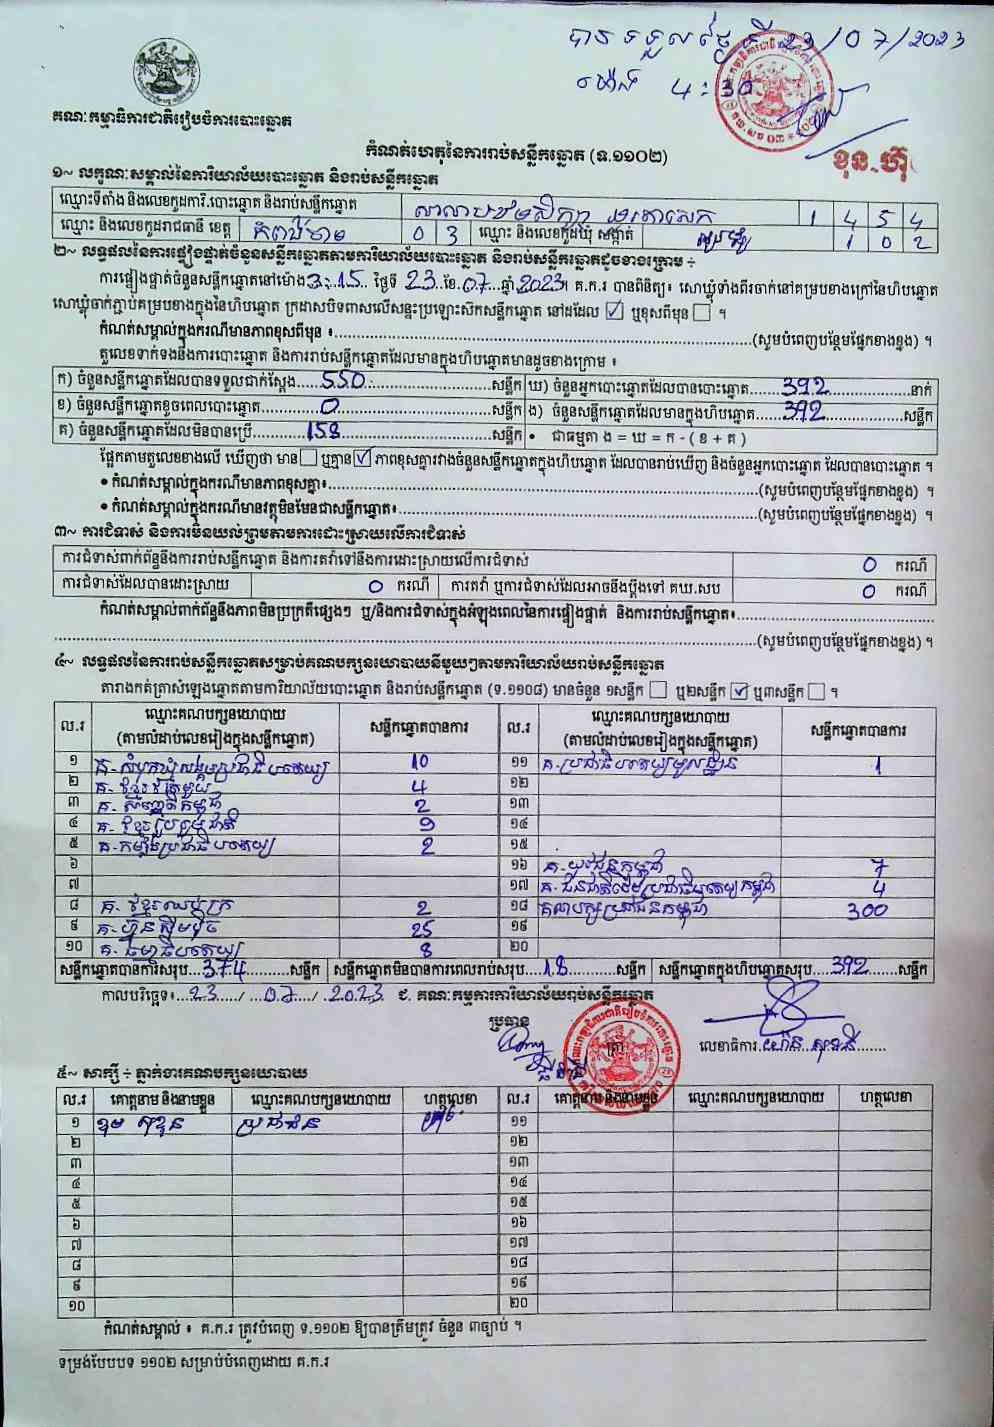 បានទទួលថ្ងៃទី 23/07/2023
ម៉ោង 4:30
គណៈកម្មាធិការជាតិរៀបចំការបោះឆ្នោត
ខុន ហ៊ុ
កំណត់ហេតុនៃការរាប់សន្លឹកឆ្នោត (ទ.១១០២)
១~ លក្ខណៈសម្គាល់នៃការិយាល័យបោះឆ្នោត និងរាប់សន្លឹកឆ្នោត
ឈ្មោះទីតាំង និងលេខកូដការិ.បោះឆ្នោត និងរាប់សន្លឹកឆ្នោត សាលាបឋមសិក្សា 1 4 5 4
ឈ្មោះ និងលេខកូដរាជធានី ខេត្ត កំពង់ចាម 0 3 ឈ្មោះ និងលេខកូដឃុំ សង្កាត់ 1 0 2
២~ លទ្ធផលនៃការផ្ទៀងផ្ទាត់ចំនួនសន្លឹកឆ្នោតតាមការិយាល័យបោះឆ្នោត និងរាប់សន្លឹកឆ្នោតដូចខាងក្រោម ÷
ការផ្ទៀងផ្ទាត់ចំនួនសន្លឹកឆ្នោតនៅម៉ោង 3:15 ថ្ងៃទី 23 ខែ 07 ឆ្នាំ 2023។ គ.ក.រ បានពិនិត្យ៖ សោឃ្លុំទាំងពីរចាក់នៅគម្របខាងក្រៅនៃហិបឆ្នោត
សោឃ្លុំចាក់ភ្ជាប់គម្របខាងក្នុងនៃហិបឆ្នោត ក្រដាសបិទពាសលើសន្ទះប្រឡោះស៊កសន្លឹកឆ្នោត នៅដដែល ☑ ឬខុសពីមុន ☐ ។
កំណត់សម្គាល់ក្នុងករណីមានភាពខុសពីមុន ៖ (សូមបំពេញបន្ថែមផ្នែកខាងខ្នង) ។
តួលេខទាក់ទងនឹងការបោះឆ្នោត និងការរាប់សន្លឹកឆ្នោតដែលមានក្នុងហិបឆ្នោតមានដូចខាងក្រោម ៖
ក) ចំនួនសន្លឹកឆ្នោតដែលបានទទួលជាក់ស្តែង 550 សន្លឹក ឃ) ចំនួនអ្នកបោះឆ្នោតដែលបានបោះឆ្នោត 392 នាក់
ខ) ចំនួនសន្លឹកឆ្នោតខូចពេលបោះឆ្នោត 0 សន្លឹក ង) ចំនួនសន្លឹកឆ្នោតដែលមានក្នុងហិបឆ្នោត 392 សន្លឹក
គ) ចំនួនសន្លឹកឆ្នោតដែលមិនបានប្រើ 158 សន្លឹក • ជាធម្មតា ង = ឃ = ក - ( ខ + គ )
ផ្អែកតាមតួលេខខាងលើ ឃើញថា មាន ☐ ឬគ្មាន ☑ ភាពខុសគ្នារវាងចំនួនសន្លឹកឆ្នោតក្នុងហិបឆ្នោត ដែលបានរាប់ឃើញ និងចំនួនអ្នកបោះឆ្នោត ដែលបានបោះឆ្នោត ។
• កំណត់សម្គាល់ក្នុងករណីមានភាពខុសគ្នា៖ (សូមបំពេញបន្ថែមផ្នែកខាងខ្នង) ។
• កំណត់សម្គាល់ក្នុងករណីមានវត្ថុមិនមែនជាសន្លឹកឆ្នោត៖ (សូមបំពេញបន្ថែមផ្នែកខាងខ្នង) ។
៣~ ការជំទាស់ និងការមិនយល់ព្រមតាមការដោះស្រាយលើការជំទាស់
ការជំទាស់ពាក់ព័ន្ធនឹងការរាប់សន្លឹកឆ្នោត និងការតវ៉ាទៅនឹងការដោះស្រាយលើការជំទាស់ 0 ករណី
ការជំទាស់ដែលបានដោះស្រាយ 0 ករណី ការតវ៉ា ឬការជំទាស់ដែលអាចនឹងប្តឹងទៅ គឃ.សប 0 ករណី
កំណត់សម្គាល់ពាក់ព័ន្ធនឹងភាពមិនប្រក្រតីផ្សេងៗ ឬ/និងការជំទាស់ក្នុងអំឡុងពេលនៃការផ្ទៀងផ្ទាត់ និងការរាប់សន្លឹកឆ្នោត៖
(សូមបំពេញបន្ថែមផ្នែកខាងខ្នង) ។
៤~ លទ្ធផលនៃការរាប់សន្លឹកឆ្នោតសម្រាប់គណបក្សនយោបាយនីមួយៗតាមការិយាល័យរាប់សន្លឹកឆ្នោត
តារាងកត់ត្រាសំឡេងឆ្នោតតាមការិយាល័យបោះឆ្នោត និងរាប់សន្លឹកឆ្នោត (ទ.១១០៨) មានចំនួន ១សន្លឹក ☐ ឬ២សន្លឹក ☑ ឬ៣សន្លឹក ☐ ។
ល.រ ឈ្មោះគណបក្សនយោបាយ (តាមលំដាប់លេខរៀងក្នុងសន្លឹកឆ្នោត) សន្លឹកឆ្នោតបានការ ល.រ ឈ្មោះគណបក្សនយោបាយ (តាមលំដាប់លេខរៀងក្នុងសន្លឹកឆ្នោត) សន្លឹកឆ្នោតបានការ
១ គ-សំបុកឃ្មុំសង្គមប្រជាធិបតេយ្យ 10 ១១ គ-ប្រជាធិបតេយ្យមូលដ្ឋាន 1
២ គ-ខ្មែរតែមួយ 4 ១២
៣ គ-កម្ពុជា 2 ១៣
៤ គ-ខ្មែររួបរួមជាតិ 9 ១៤
៥ គ-កម្លាំងប្រជាធិបតេយ្យ 2 ១៥
៦ ១៦ គ-យុវជនកម្ពុជា 7
៧ ១៧ គ-ជនជាតិដើមប្រជាធិបតេយ្យកម្ពុជា 4
៨ គ-ខ្មែរឈប់ក្រ 2 ១៨ គណបក្សប្រជាជនកម្ពុជា 300
៩ គ-ហ៊្វុនស៊ិនប៉ិច 25 ១៩
១០ គ-ធម្មាធិបតេយ្យ 8 ២០
សន្លឹកឆ្នោតបានការសរុប 374 សន្លឹក សន្លឹកឆ្នោតមិនបានការពេលរាប់សរុប 18 សន្លឹក សន្លឹកឆ្នោតក្នុងហិបឆ្នោតសរុប 392 សន្លឹក
កាលបរិច្ឆេទ៖ 23 / 07 / 2023 ជ. គណៈកម្មការការិយាល័យរាប់សន្លឹកឆ្នោត
ប្រធាន ត្រា លេខាធិការ
៥~ សាក្សី ÷ ភ្នាក់ងារគណបក្សនយោបាយ
ល.រ គោត្តនាម និងនាមខ្លួន ឈ្មោះគណបក្សនយោបាយ ហត្ថលេខា ល.រ គោត្តនាម និងនាមខ្លួន ឈ្មោះគណបក្សនយោបាយ ហត្ថលេខា
១ ប្រជាជន ១១
២ ១២
៣ ១៣
៤ ១៤
៥ ១៥
៦ ១៦
៧ ១៧
៨ ១៨
៩ ១៩
១០ ២០
កំណត់សម្គាល់ ៖ គ.ក.រ ត្រូវបំពេញ ទ.១១០២ ឱ្យបានត្រឹមត្រូវ ចំនួន ៣ច្បាប់ ។
ទម្រង់បែបបទ ១១០២ សម្រាប់បំពេញដោយ គ.ក.រ